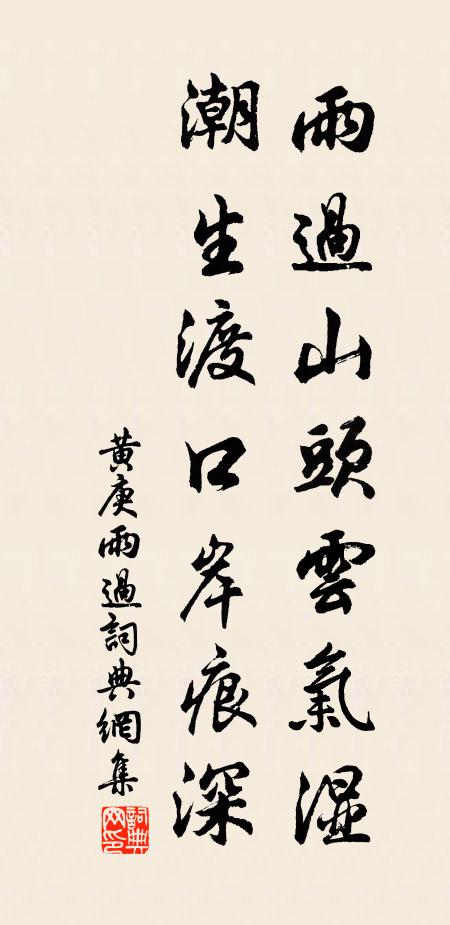 雨過山頭雲氣湿
潮生渡口岸痕深
黄庚雨過詞典網集
詞典网印